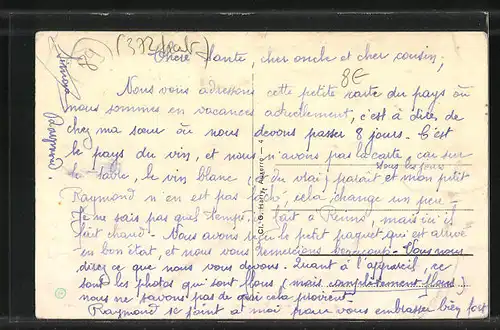 89
(372 pab)
Chère Tante, cher oncle et cher cousin,
8E
Nous vous adressons cette petite carte du pays où
nous sommes en vacances actuellement, c'est à dire de
chez ma sœur où nous devons passer 8 jours. C'est
le pays du vin, et nous n'avons pas la carte car sur
tous les jours
la table, le vin blanc, (et du vrai) parait et mon petit
Raymond n'en est pas fâché, cela change un peu.
Je ne sais pas quel temps il fait à Reims, mais ici il
fait chaud. Nous avons reçu le petit paquet qui est arrivé
en bon état, et nous vous remercions beaucoup. Vous nous
direz ce que nous vous devons. Quant à l'appareil, ce
sont les photos qui sont flous (mais complètement flous)
nous ne savons pas de quoi cela provient.
Raymond se joint à moi pour vous embrasser bien fort
Simone
Raymond